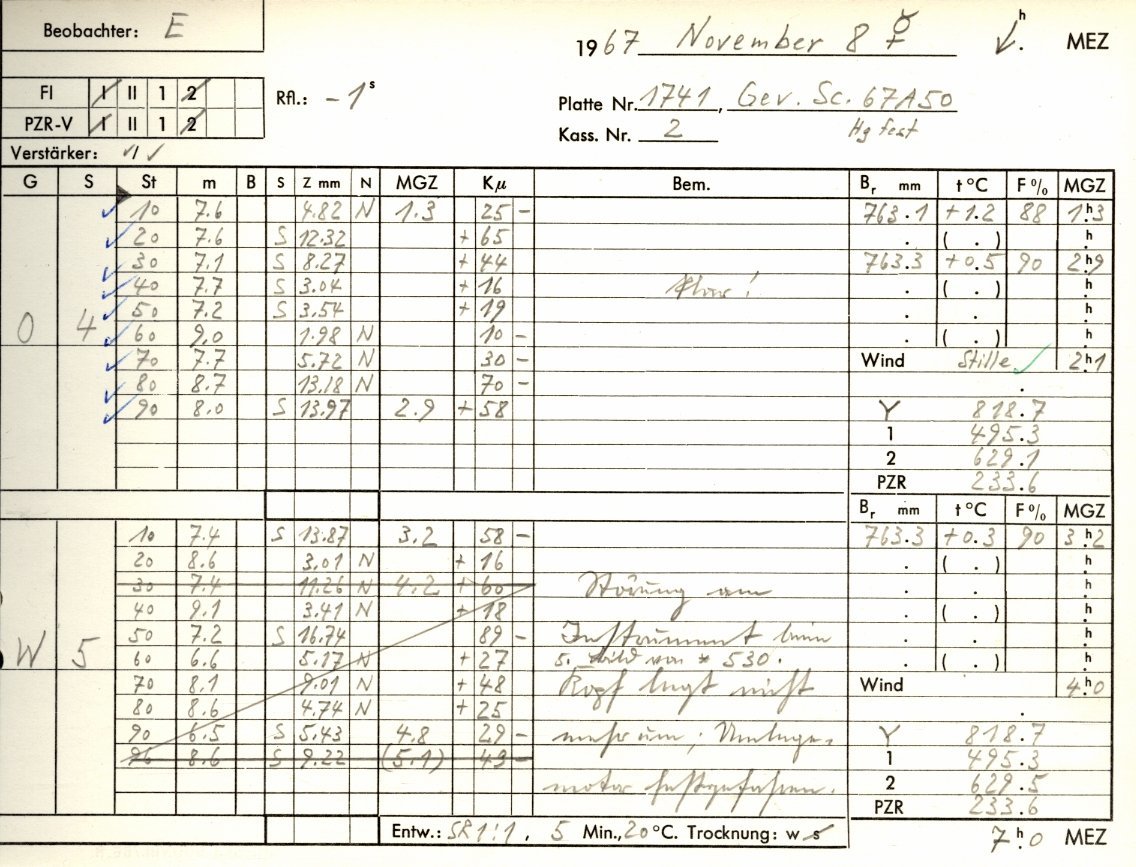 Beobachter: E
1967 November 8 ☿ h . MEZ
FI I II 1 2
PZR-V I II 1 2
Rfl.: -1 s
Platte Nr. 1741, Gev. Sc. 67A50
Kass. Nr. 2 Hg fest
Verstärker: √/√
G S St m B S Z mm N MGZ Kμ Bem. Br mm t°C F% MGZ
10 7.6 4.82 N 1.3 25 - 763.1 +1.2 88 1h.3
20 7.6 S 12.32 + 65 . ( . ) h.
30 7.1 S 8.27 + 44 763.3 +0.5 90 2h.9
40 7.7 S 3.04 + 16 klar! . ( . ) h.
50 7.2 S 3.54 + 19 . . h.
O 4 60 9.0 1.98 N 10 - . ( . ) h.
70 7.7 5.72 N 30 - Wind Stille √ 2h.1
80 8.7 13.18 N 70 - .
90 8.0 S 13.97 2.9 + 58 Y 818.7
1 495.3
2 629.1
PZR 233.6
Br mm t°C F% MGZ
10 7.4 S 13.87 3.2 58 - 763.3 +0.3 90 3h.2
20 8.6 3.01 N + 16 . ( . ) h.
30 7.4 11.26 N 4.2 + 60 Störung am . . h.
40 9.1 3.41 N + 18 . ( . ) h.
50 7.2 S 16.74 89 - Instrument beim . . h.
W 5 60 6.6 5.17 N + 27 5. Bild von * 530. . ( . ) h.
70 8.1 9.01 N + 48 Kopf legt nicht Wind 4h.0
80 8.6 4.74 N + 25 .
90 6.5 S 5.43 4.8 29 - mehr um; Umlege- Y 818.7
96 8.6 S 9.22 (5.1) 49 - 1 495.3
motor festgefahren. 2 629.5
PZR 233.6
Entw.: SR 1:1, 5 Min., 20 °C. Trocknung: w s 7h.0 MEZ